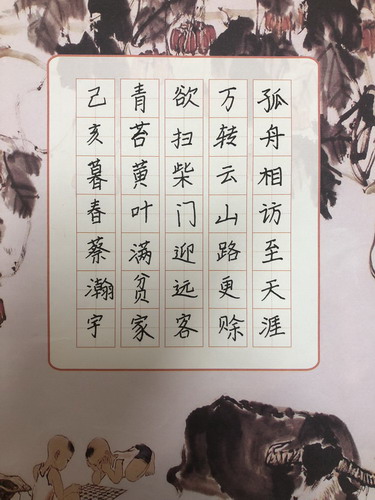 孤舟相访至天涯
万转云山路更赊
欲扫柴门迎远客
青苔黄叶满贫家
己亥暮春蔡瀚宇